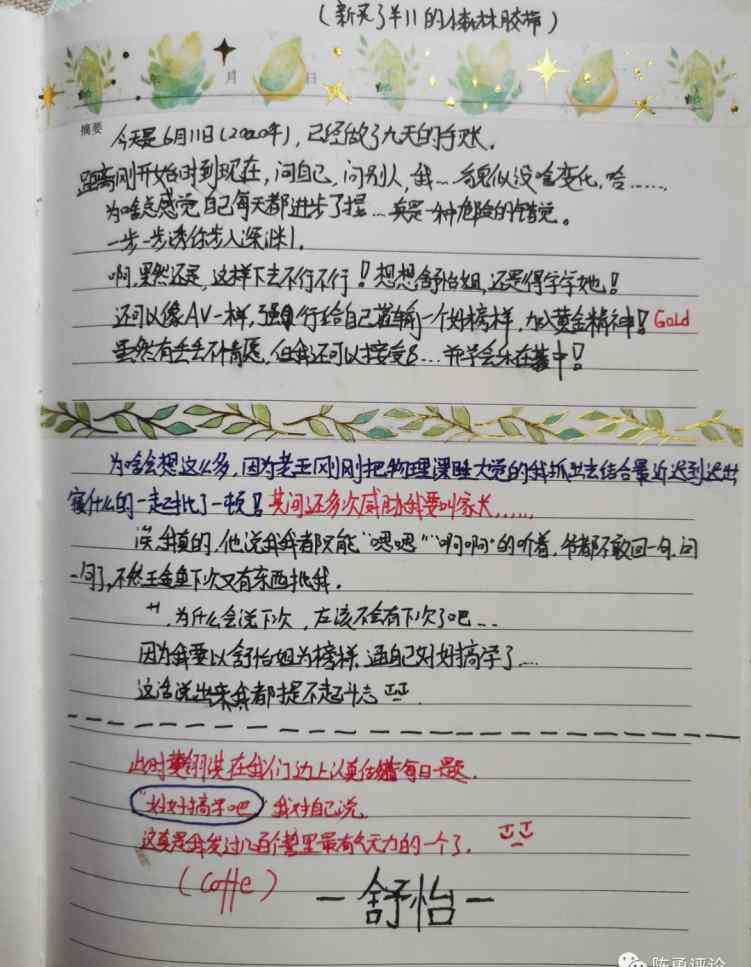 (新买了羊儿的小森林胶带)
年 月 日
摘要
今天是6月11日(2020年),已经做了九天的手账。
距离刚开始时到现在,问自己,问别人,我…貌似没啥变化,哈……
为啥总感觉自己每天都进步了捏…真是一种危险的错觉。
一步一步诱你步入深渊!
啊,果然还是,这样下去不行不行!想想舒怡姐,还是得学学她!
还可以像AV一样,强行给自己灌输一个好榜样,加入黄金精神! Gold
虽然有丢丢不情愿,但我还可以接受…并学会乐在其中!
为啥会想这么多,因为老王刚刚把物理课睡大觉的我抓出去结合最近迟到迟出
寝什么的一起批了一顿!其间还多次威胁我要叫家长……
唉,我真的,他说我我都只能“嗯嗯”“啊啊”的听着,爷都不敢回一句,问
一句了,不然王金鱼下次又有东西批我。
,为什么会说下次,应该不会有下次了吧…
因为我要以舒怡姐为榜样,逼自己好好搞学了…
这话说出来我都提不起斗志
此时在我们边上认真做着每日一题。
“好好搞学吧”我对自己说。
这真是我发过几百个誓里最有气无力的一个了。
(Coffe)
—舒怡—
陈勇评论